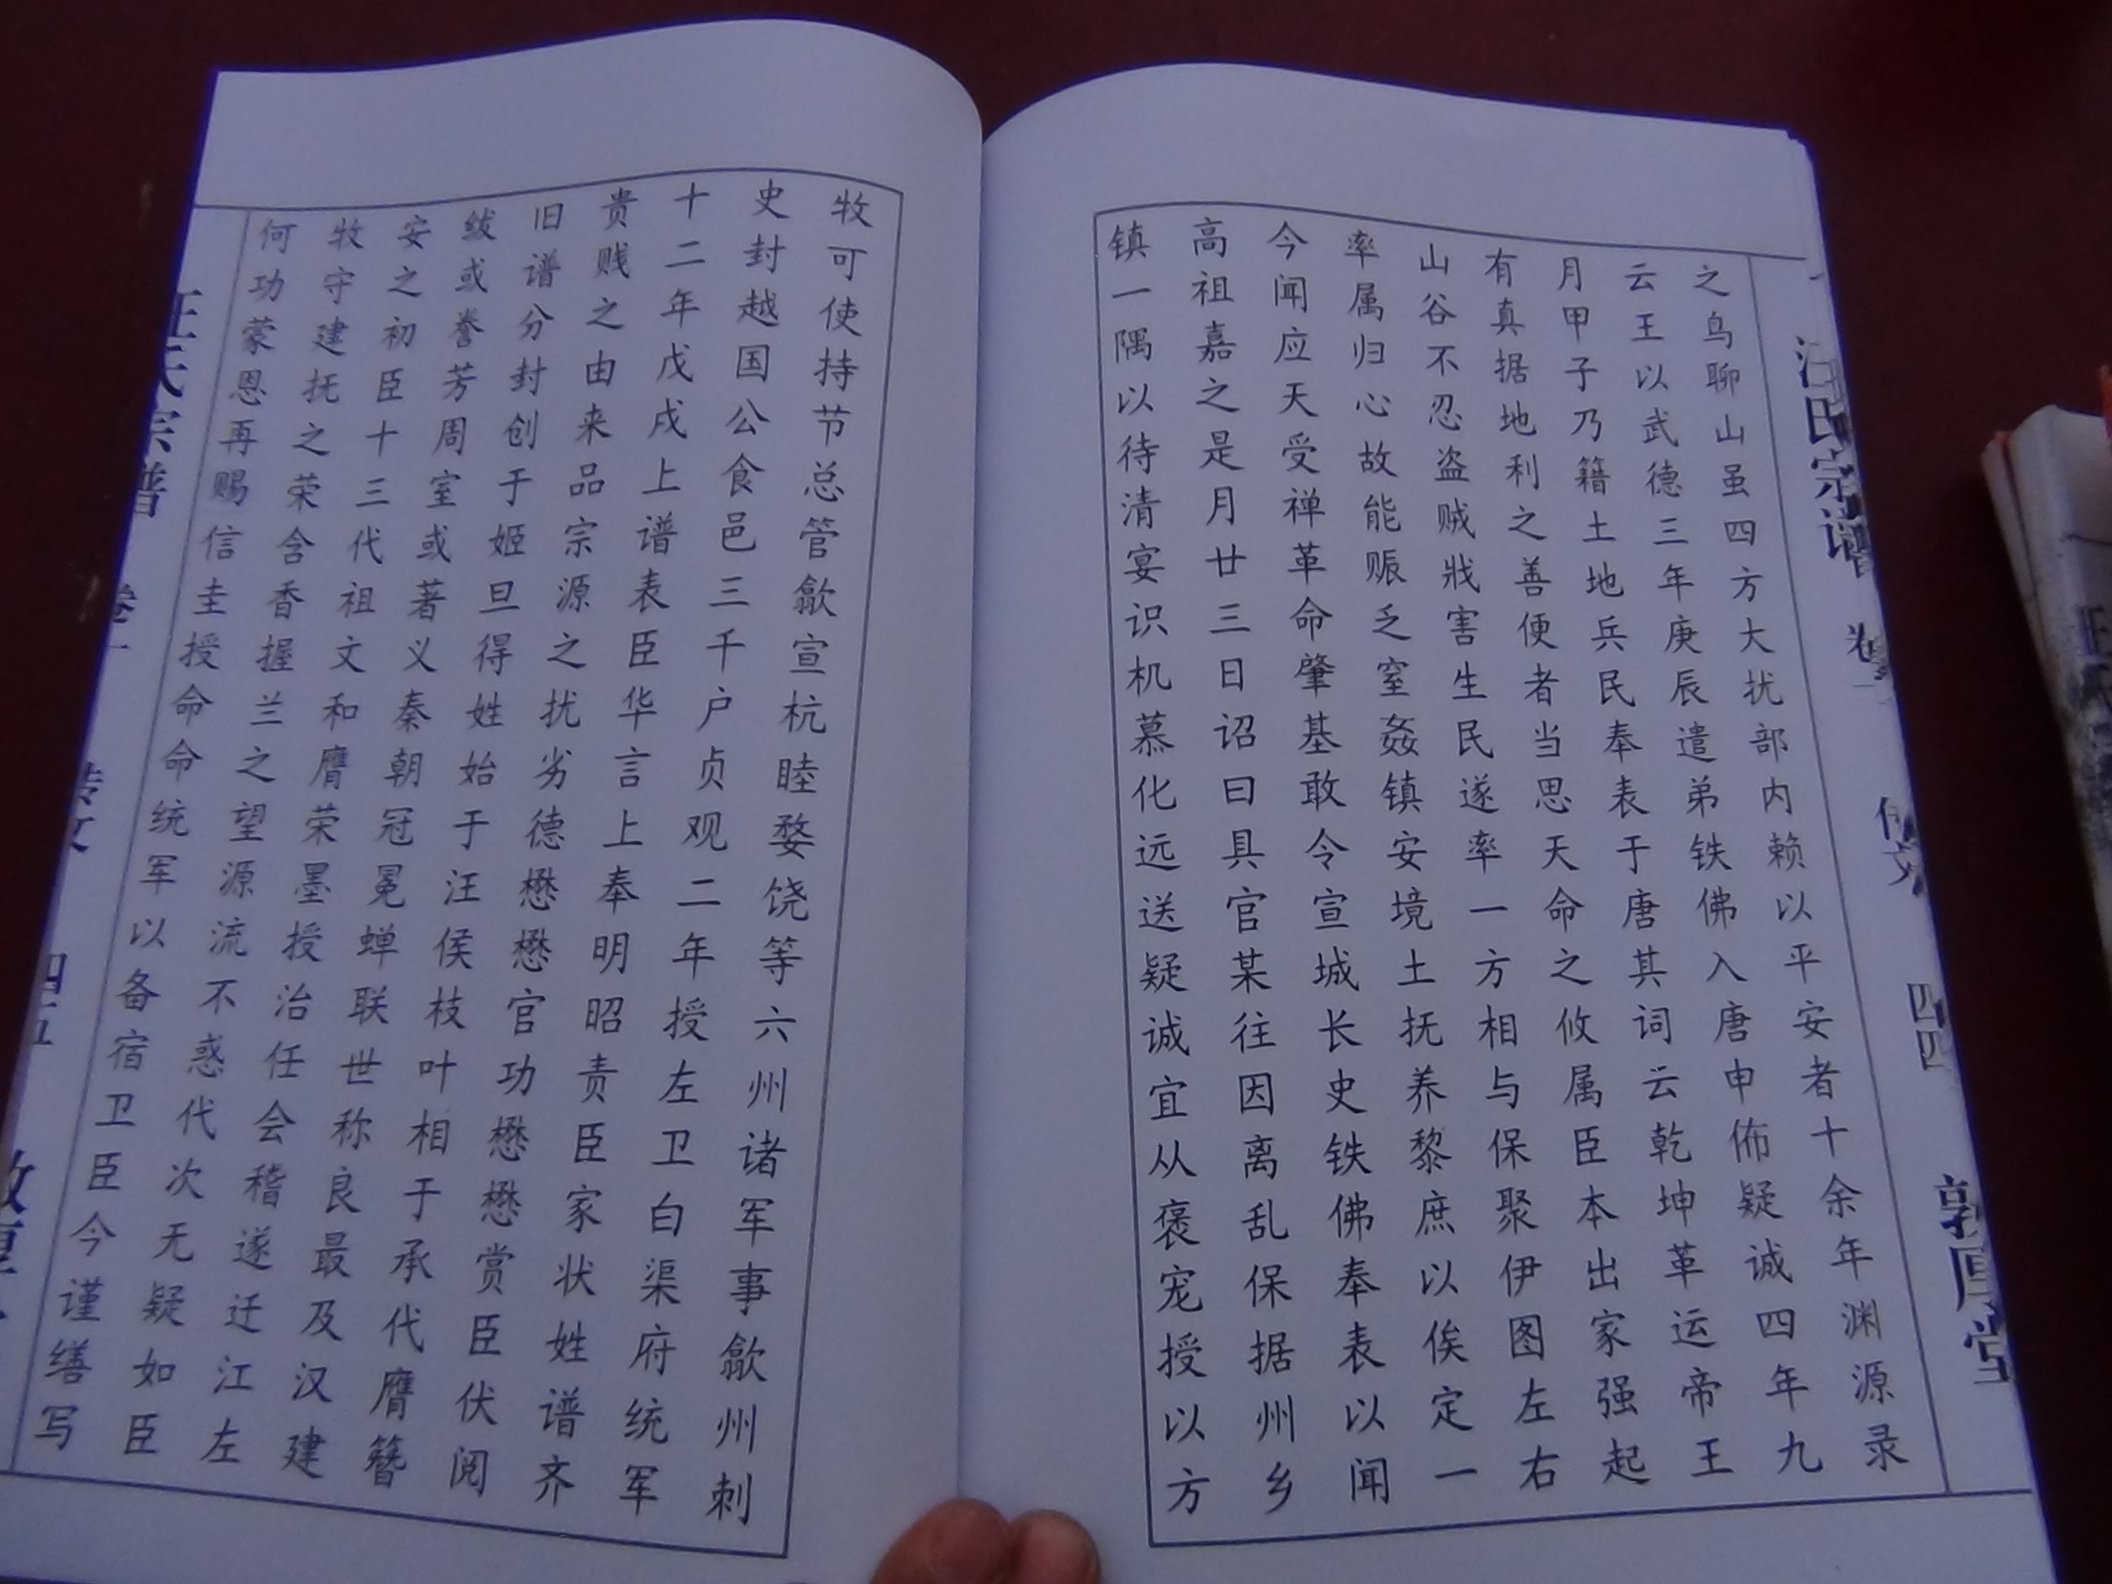 汪氏宗谱 卷一 传文 四四 敦厚堂
之乌聊山虽四方大扰部内赖以平安者十余年渊源录
云王以武德三年庚辰遣弟铁佛入唐申佈疑诚四年九
月甲子乃籍土地兵民奉表于唐其词云乾坤革运帝王
有真据地利之善便者当思天命之攸属臣本出家强起
山谷不忍盗贼戕害生民遂率一方相与保聚伊图左右
率属归心故能赈乏窒姦镇安境土抚养黎庶以俟定一
今闻应天受禅革命肇基敢令宣城长史铁佛奉表以闻
高祖嘉之是月廿三日诏曰具官某往因离乱保据州乡
镇一隅以待清宴识机慕化远送疑诚宜从褒宠授以方
牧可使持节总管歙宣杭睦婺饶等六州诸军事歙州刺
史封越国公食邑三千户贞观二年授左卫白渠府统军
十二年戊戌上谱表臣华言上奉明昭责臣家状姓谱齐
贵贱之由来品宗源之扰劣德懋懋官功懋懋赏臣伏阅
旧谱分封创于姬旦得姓始于汪侯枝叶相于承代膺簪
绂或誉芳周室或著义秦朝冠冕蝉联世称良最及汉建
安之初臣十三代祖文和膺荣墨授治任会稽遂迁江左
牧守建抚之荣含香握兰之望源流不惑代次无疑如臣
何功蒙恩再赐信圭授命命统军以备宿卫臣今谨缮写
汪氏宗谱 卷一 传文 四五